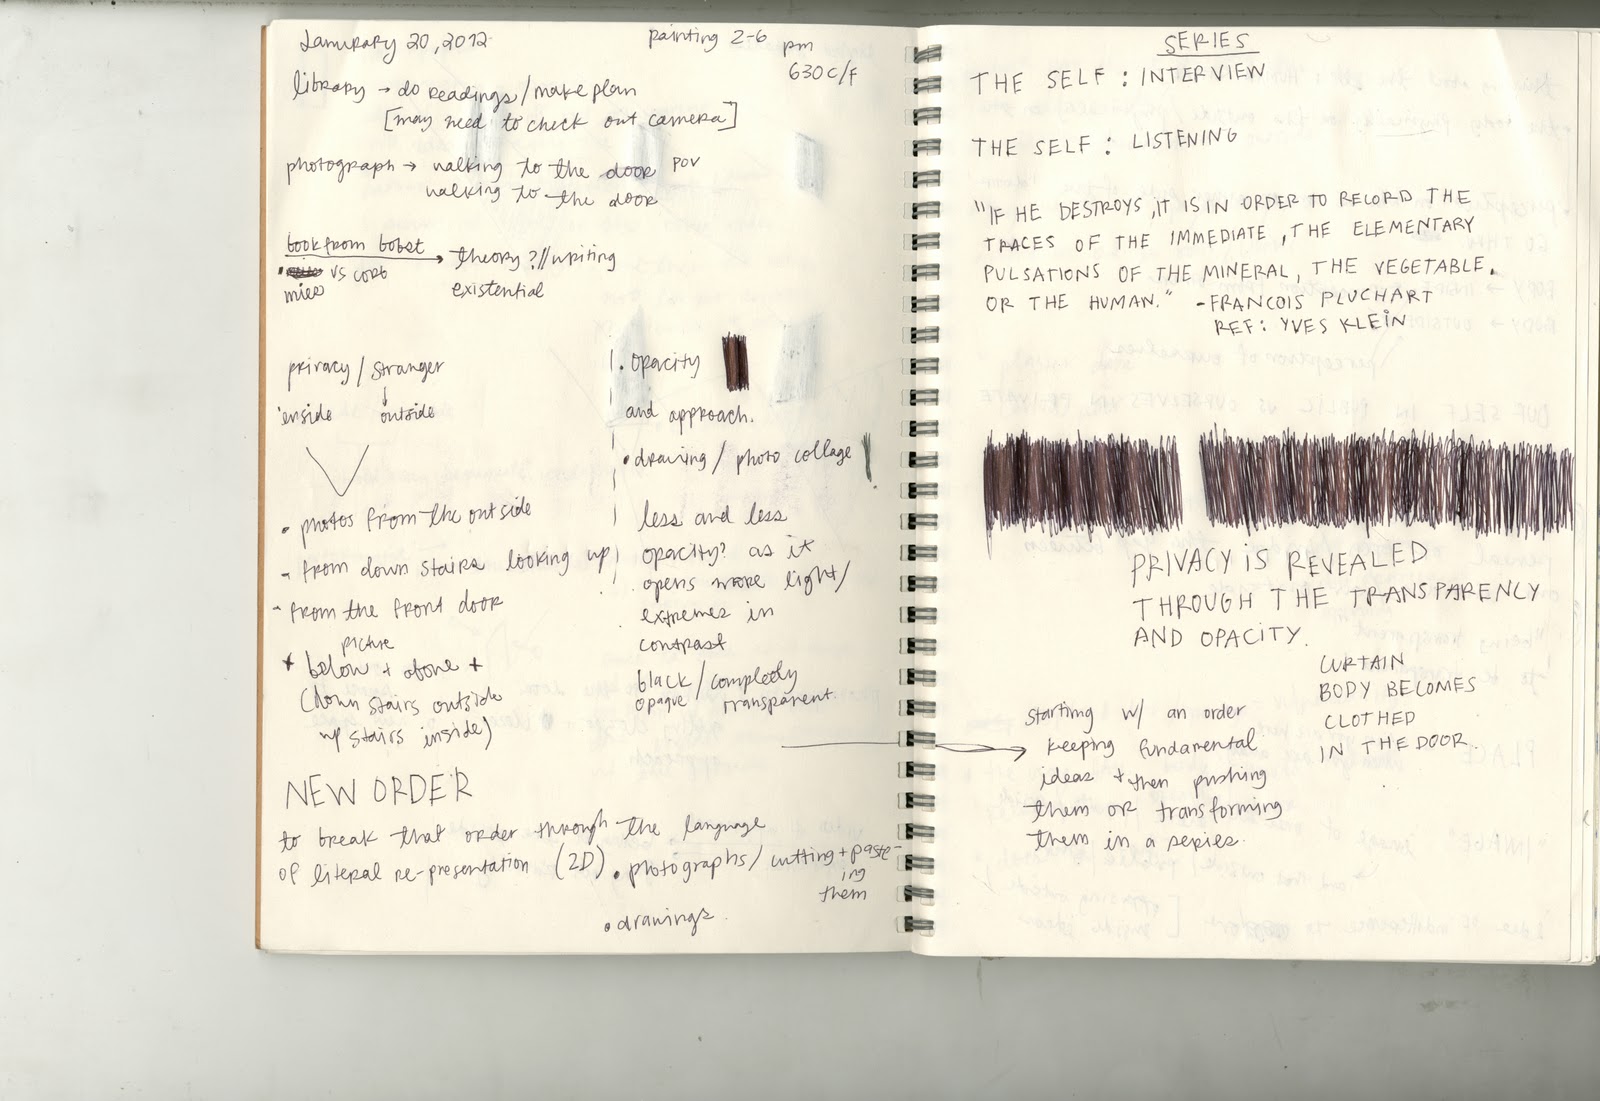 January 20, 2012
painting 2-6 pm
630 C/F
library → do readings/make plan
[may need to check out camera]
photograph → walking to the door POV
walking to the door
book from bobst → theory?//writing
existential
vs
privacy / stranger
inside ↓ outside
• photos from the outside
- from down stairs looking up
- from the front door
picture
* below + above +
(down stairs outside
up stairs inside)
1. opacity
and approach.
• drawing / photo collage
less and less
opacity? as it
opens more light/
extremes in
contrast
black / completly
opaque transparent.
NEW ORDER
to break that order through the language
of literal re-presentation (2D). • photographs/ cutting + paste-
ing
them
• drawings.
SERIES
THE SELF : INTERVIEW
THE SELF : LISTENING
"IF HE DESTROYS, IT IS IN ORDER TO RECORD THE
TRACES OF THE IMMEDIATE, THE ELEMENTARY
PULSATIONS OF THE MINERAL, THE VEGETABLE,
OR THE HUMAN." -FRANCOIS PLUCHART
REF: YVES KLEIN
PRIVACY IS REVEALED
THROUGH THE TRANSPARENCY
AND OPACITY.
CURTAIN
BODY BECOMES
CLOTHED
IN THE DOOR.
starting w/ an order
keeping fundamental
ideas + then pushing
them or transforming
them in a series.